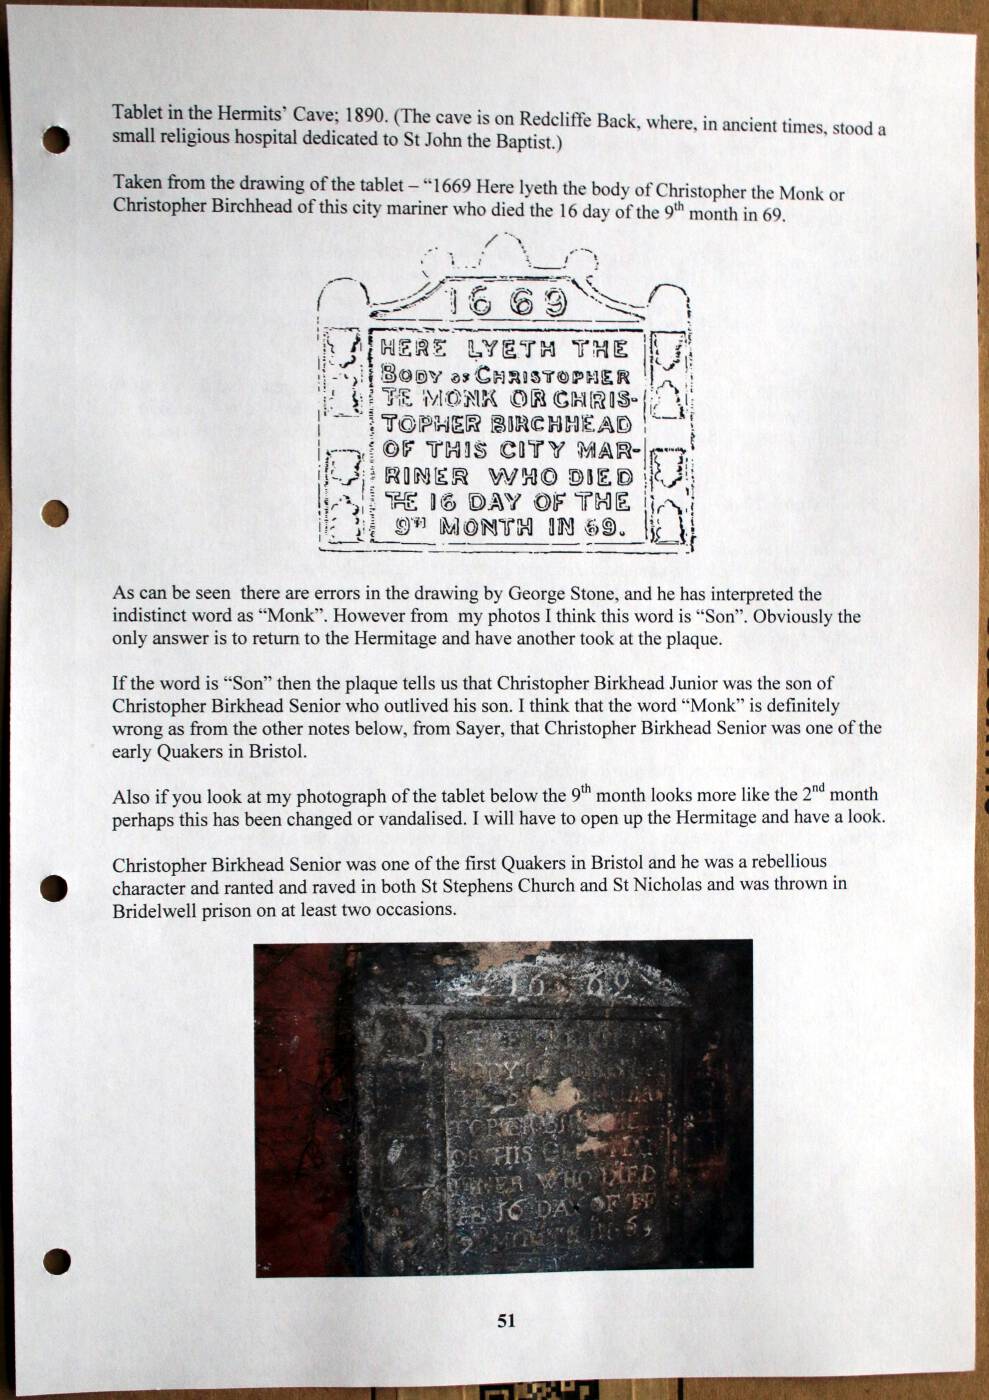 Tablet in the Hermits’ Cave; 1890. (The cave is on Redcliffe Back, where, in ancient times, stood a
small religious hospital dedicated to St John the Baptist.)
Taken from the drawing of the tablet – “1669 Here lyeth the body of Christopher the Monk or
Christopher Birchhead of this city mariner who died the 16 day of the 9th month in 69.
1669
HERE LYETH THE
BODY OF CHRISTOPHER
TE MONK OR CHRIS-
TOPHER BIRCHHEAD
OF THIS CITY MAR-
RINER WHO DIED
TE 16 DAY OF THE
9TH MONTH IN 69.
As can be seen  there are errors in the drawing by George Stone, and he has interpreted the
indistinct word as “Monk”. However from  my photos I think this word is “Son”. Obviously the
only answer is to return to the Hermitage and have another took at the plaque.
If the word is “Son” then the plaque tells us that Christopher Birkhead Junior was the son of
Christopher Birkhead Senior who outlived his son. I think that the word “Monk” is definitely
wrong as from the other notes below, from Sayer, that Christopher Birkhead Senior was one of the
early Quakers in Bristol.
Also if you look at my photograph of the tablet below the 9th month looks more like the 2nd month
perhaps this has been changed or vandalised. I will have to open up the Hermitage and have a look.
Christopher Birkhead Senior was one of the first Quakers in Bristol and he was a rebellious
character and ranted and raved in both St Stephens Church and St Nicholas and was thrown in
Bridelwell prison on at least two occasions.
OF THIS
WHO
16 DAY OF
51